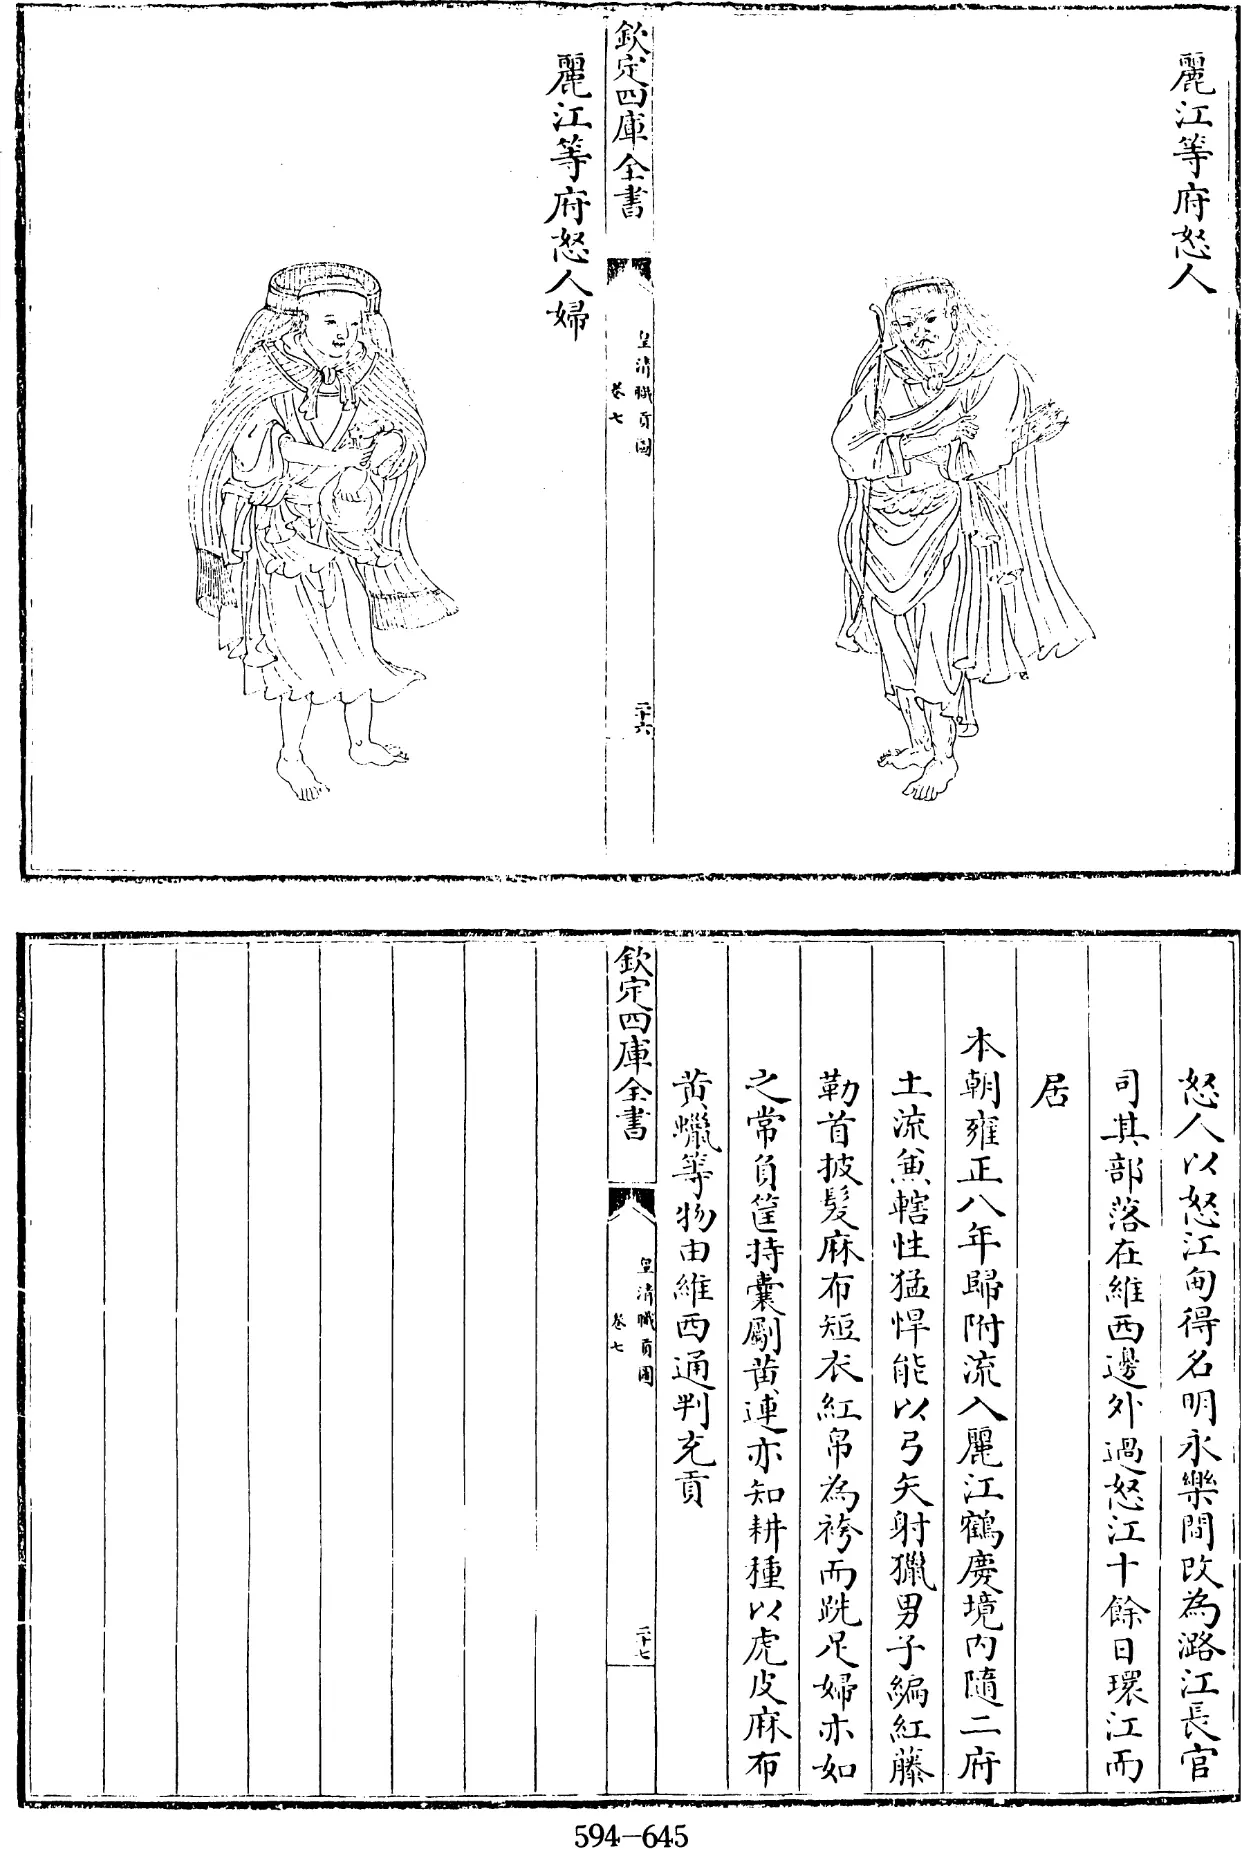 麗江等府怒人
欽定四庫全書
皇清職貢圖
卷七
二十六
麗江等府怒人婦
怒人以怒江甸得名明永樂間改為潞江長官
司其部落在維西邊外過怒江十餘日環江而
居
本朝雍正八年歸附流入麗江鶴慶境内隨二府
土流兼轄性猛悍能以弓矢射獵男子編紅藤
勒首披髮麻布短衣紅帛為袴而跣足婦亦如
之常負筐持囊劚黄連亦知耕種以虎皮麻布
黄蠟等物由維西通判充貢
欽定四庫全書
皇清職貢圖
卷七
二十七
594-645